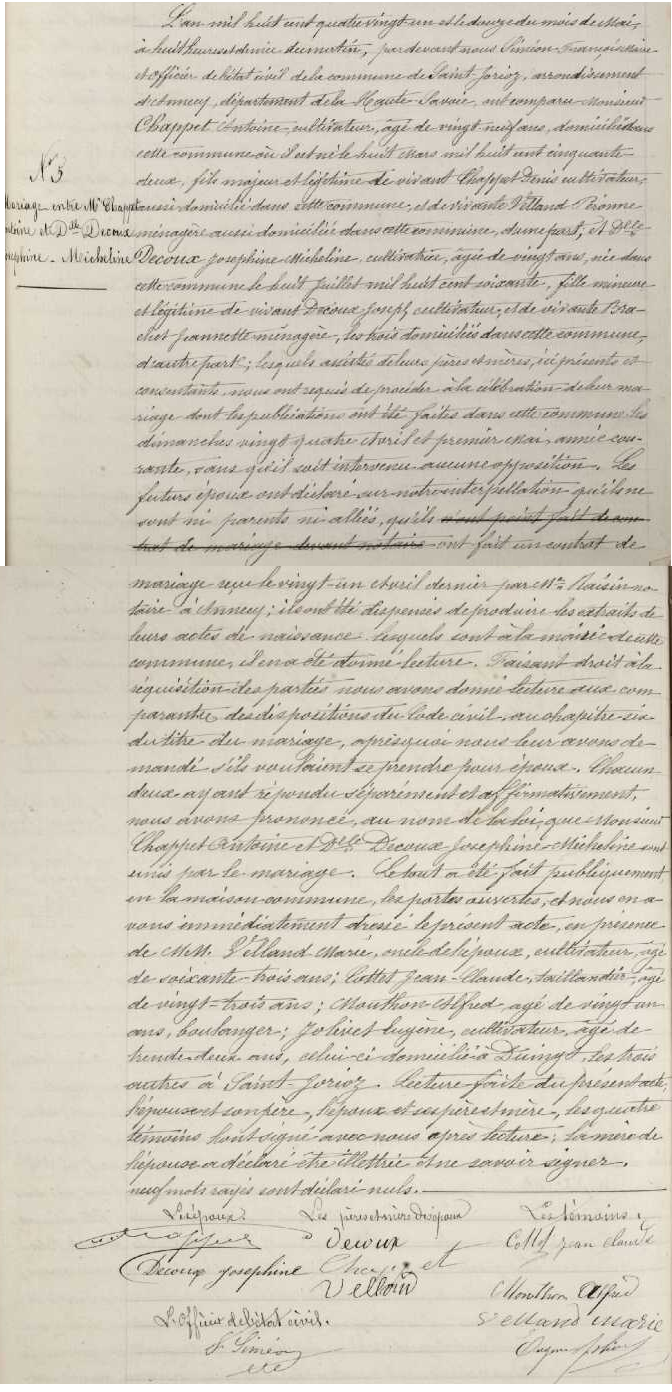 L'an mil huit cent quatre vingt un et le douze du mois de Mai,
à huit heures et demie du matin, par devant nous Siméon François Maire
et officier de l'état civil de la commune de Saint Jorioz, arrondissement
d'Annecy, département de la Haute Savoie, ont comparu Monsieur
Chappet Antoine cultivateur, âgé de vingt neuf ans, domicilié dans
cette commune où il est né le huit Mars mil huit cent cinquante
deux, fils majeur et légitime de vivant Chappet Denis cultivateur,
N° 5
Mariage entre Mr Chappet
Antoine et Dlle Decoux
Josephine - Micheline
aussi domicilié dans cette commune, et de vivante Velland Péronne
ménagère aussi domiciliée dans cette commune, d'une part; et Dlle
Decoux Josephine Micheline cultivatrice, âgée de vingt ans, née dans
cette commune le huit Juillet mil huit cent soixante, fille mineure
et légitime de vivant Decoux Joseph cultivateur, et de vivante Bra-
chet Jeannette ménagère, les trois domiciliés dans cette commune,
d'autre part; lesquels assistés de leurs pères et mères, ici présents et
consentants, nous ont requis de procéder à la célébration de leur ma-
riage dont les publications ont été faites dans cette commune les
dimanches vingt quatre Avril et premier Mai, année cou-
rante, sans qu'il soit intervenu aucune opposition. Les
futurs époux ont déclaré sur notre interpellation qu'ils ne
sont ni parents ni alliés, qu'ils n'ont point fait de con-
trat de mariage devant notaire ont fait un contrat de
mariage reçu le vingt-un Avril dernier par Me Raisin no-
taire à Annecy; ils ont été dispensés de produire les extraits de
leurs actes de naissance lesquels sont à la mairie de cette
commune, il en a été donné lecture. Faisant droit à la
réquisition des parties nous avons donné lecture aux com
parants, des dispositions du Code civil, au chapitre six
du titre du mariage, après quoi nous leur avons de-
mandé s'ils voulaient se prendre pour époux. Chacun
deux ayant répondu séparément et affirmativement,
nous avons prononcé, au nom de la loi, que Monsieur
Chappet Antoine et Dlle Decoux Josephine Micheline sont
unis par le mariage. Le tout a été fait publiquement
en la maison commune, les portes ouvertes, et nous en a-
vons immédiatement dressé le présent acte, en présence
de M.M. Velland Marie, oncle de l'époux, cultivateur, âgé
de soixante-trois ans; Cottet Jean-Claude, taillandier, âgé
de vingt-trois ans; Mouthon Alfred, agé de vingt un
ans, boulanger; Jolivet Eugène, cultivateur, âgé de
trente-deux ans, celui-ci domicilié à Duingt, les trois
autres à Saint-Jorioz. Lecture faite du présent acte,
l'épouse et son père, l'époux et ses père et mère, les quatre
témoins l'ont signé avec nous après lecture; la mère de
l'épouse a déclaré être illettrée et ne savoir signer.
neuf mots rayés sont déclaré nuls.
Les époux. Les pères et mère des époux Les témoins.
Decoux Cottet jean claude
Decoux josephine
Velland Mouthon Alfred
L'officier de l'état civil. Velland Marie
F. Siméon